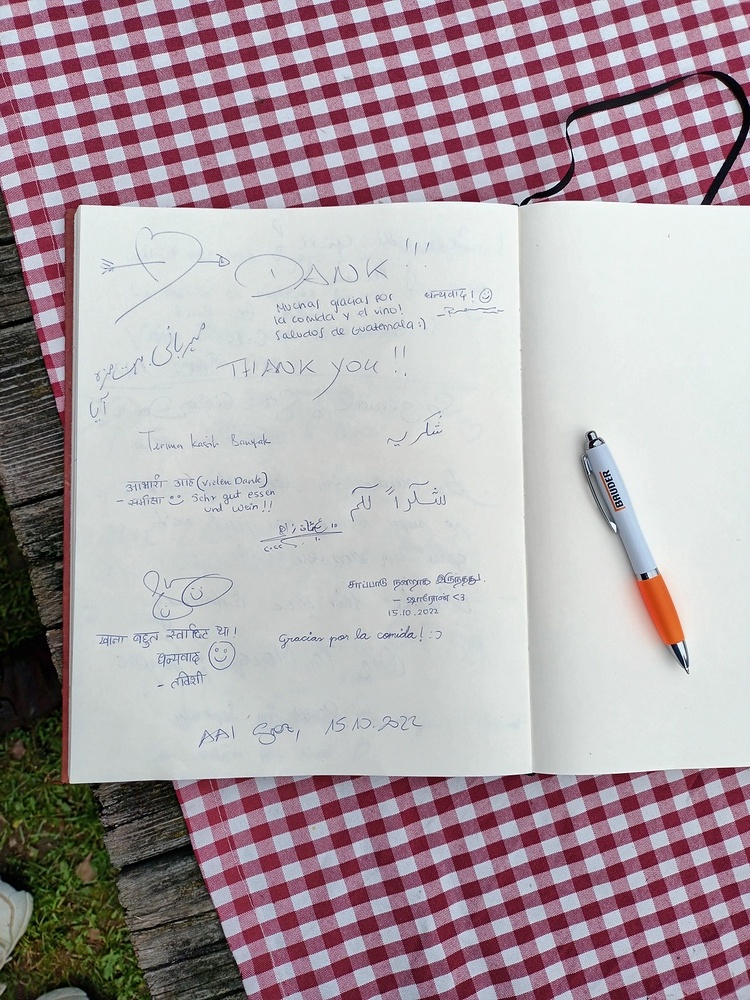 DANK !!!
Muchas gracias por
la comida y el vino!
Saludos de Guatemala :)
धन्यवाद !
مہربانی بہت مزہ
آیا
THANK YOU !!
Terima kasih Banyak
شکریہ
आभारी आहे (vielen Dank)
- समीक्षा Sehr gut essen
und wein !!
شكراً لكم
சாப்பாடு நன்றாக இருந்தது.
- ஷாரோன் <3
15.10.2022
खाना बहुत स्वादिष्ट था !
धन्यवाद
- तविशी
Gracias por la comida! :)
AAI Graz, 15.10.2022
BAUDER